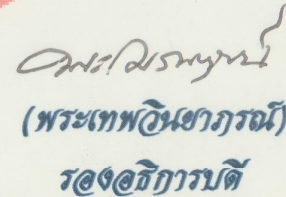 (พระเทพวินยาภรณ์)
รองอธิการบดี